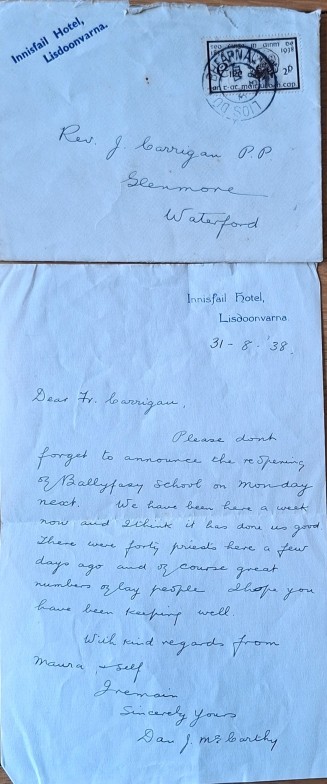 Innisfail Hotel,
Lisdoonvarna.
1938
2p
Rev. J. Carrigan P.P.
Glenmore
Waterford
Innisfail Hotel,
Lisdoonvarna.
31 - 8 - '38.
Dear Fr. Carrigan,
Please dont
forget to announce the reopening
of Ballyfasy School on Monday
next. We have been here a week
now and I think it has done us good
There were forty priests here a few
days ago and of course great
numbers of lay people I hope you
have been keeping well.
With kind regards from
Maura, & self
I remain
Sincerely Yours
Dan J. McCarthy